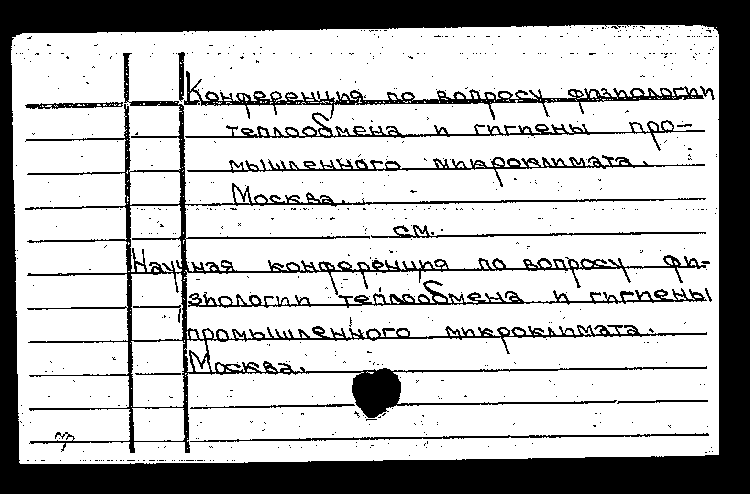 Конференция по вопросу физиологии
теплообмена и гигиены про-
мышленного микроклимата.
Москва.
см.
Научная конференция по вопросу фи-
зиологии теплообмена и гигиены
промышленного микроклимата.
Москва.